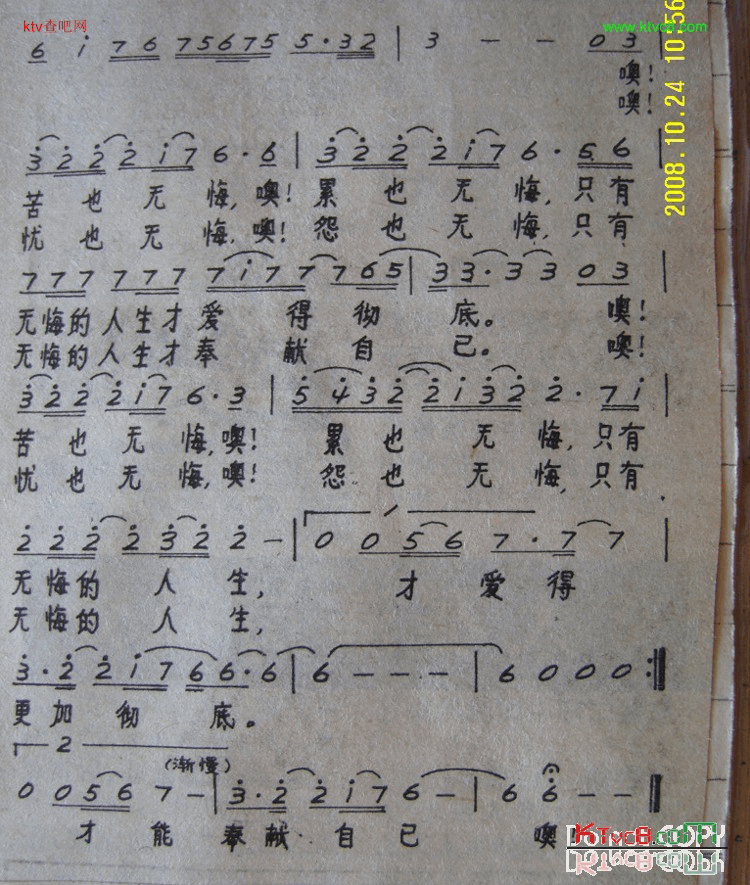 ktv查吧网
www.ktvc8.com
2008.10.24 10:56
6 i 7 6 7 5 6 7 5 5 · 3 2 | 3 - - 0 3 |
噢!
噢!
3 2 2 2 i 7 6 · 6 | 3 2 2 2 i 7 6 · 5 6 |
苦也无悔,噢!累也无悔,只有
忧也无悔,噢!怨也无悔,只有
7 7 7 7 7 7 7 i 7 7 7 6 5 | 3 3 · 3 3 0 3 |
无悔的人生才爱得彻底。噢!
无悔的人生才奉献自己。噢!
3 2 2 2 i 7 6 · 3 | 5 4 3 2 2 i 3 2 2 · 7 i |
苦也无悔,噢!累也无悔,只有
忧也无悔,噢!怨也无悔,只有
1
2 2 2 2 3 2 2 - | 0 0 5 6 7 · 7 7 |
无悔的人生,才爱得
无悔的人生,
3 · 2 2 i 7 6 6 · 6 | 6 - - - | 6 0 0 0 :||
更加彻底。
2
(渐慢)
0 0 5 6 7 - | 3 · 2 2 i 7 6 - | 6 6 - - ||
才能奉献自己噢
KTvc8.com